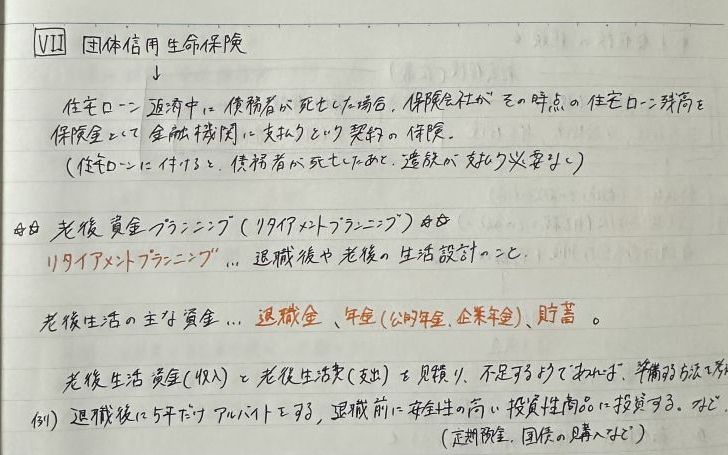 VII 団体信用生命保険
↓
住宅ローン返済中に債務者が死亡した場合、保険会社がその時点の住宅ローン残高を
保険金として金融機関に支払うという契約の保険。
(住宅ローンに付けると、債務者が死亡したあと、遺族が支払う必要なし)
☆☆ 老後資金プランニング(リタイアメントプランニング) ☆☆
リタイアメントプランニング … 退職後や老後の生活設計のこと.
老後生活の主な資金 … 退職金、年金(公的年金、企業年金)、貯蓄。
老後生活資金(収入)と老後生活費(支出)を見積り、不足するようであれば、準備する方法を考
(例) 退職後に5年だけアルバイトをする, 退職前に安全性の高い投資性商品に投資する。など.
(定期預金、国債の購入など)